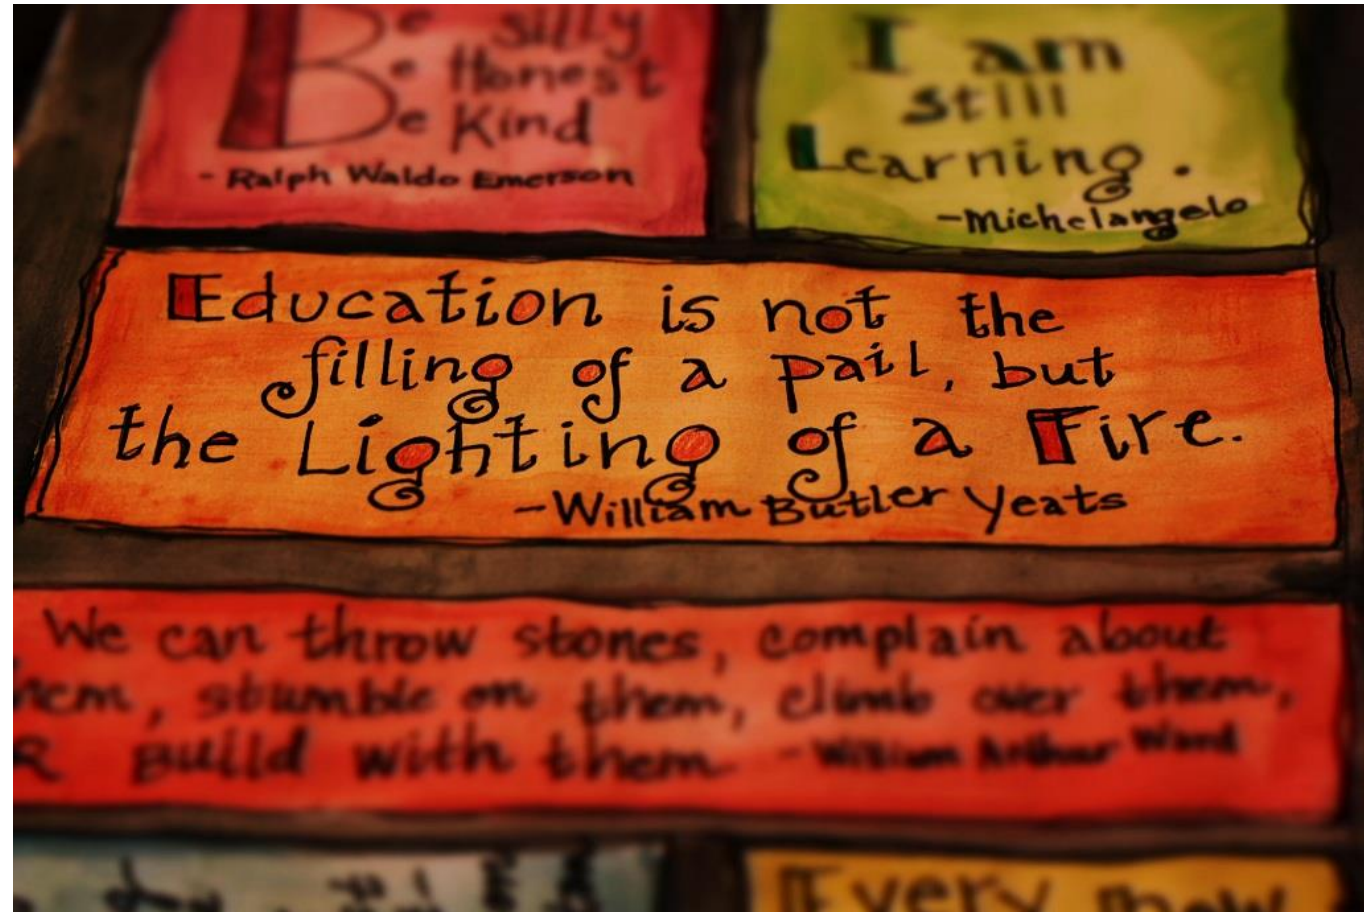 Be silly
Be Honest
Be Kind
- Ralph Waldo Emerson
I am
still
Learning.
-Michelangelo
Education is not the
filling of a pail, but
the Lighting of a Fire.
-William Butler Yeats
We can throw stones, complain about
hem, stumble on them, climb over them,
R Build with them - William Arthur Ward
Every now